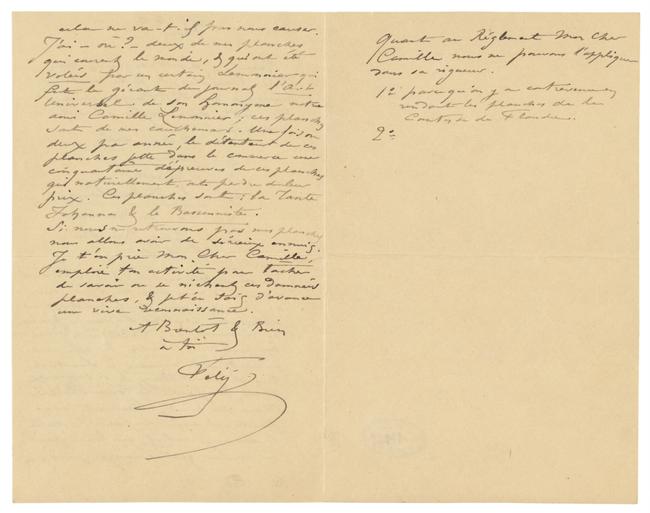 cela ne va-t-il pas nous causer.
J'ai – où? – deux de mes planches
qui courent le monde, & qui ont été
volées par un certain Lemonnier qui
fut le gérant du journal l'Art
Universel de son homonyme notre
ami Camille Lemonnier; ces planches
sont de mes cauchemars. Une fois ou
deux par année, le détenteur de ces
planches jette dans le commerce une
cinquantaine d'épreuves de ces planches
qui naturellement, perdre de leur
prix. Ces planches sont: la Tante
Johanna & le Bassonniste.
Si nous ne retrouvons pas mes planches
nous allons avoir de sérieux ennuis.
Je t'en prie Mon Cher Camille,
emploie ton activité pour tacher
de savoir ou se nichent ces damnées
planches, & je t'en d'avance
une vive reconnaissance.
A Bientôt & Bien
à toi
Fély
Quant au Règlement Mon Cher
Camille nous ne pouvons l'appliquer
dans sa rigueur.
1º parcequ'on y a contrevenu en
vendant les planches de la
Comtesse de Flandre.
2º